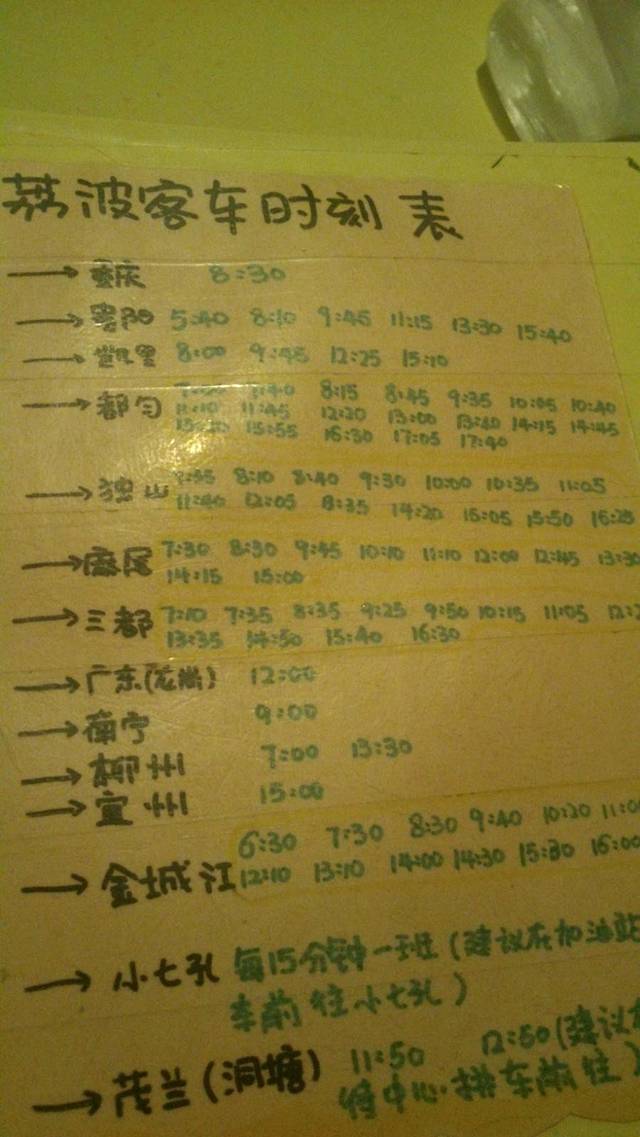 荔波客车时刻表
→ 重庆 8:30
→ 贵阳 5:40 8:10 9:45 11:15 13:30 15:40
→ 凯里 8:00 9:45 12:25 15:10
→ 都匀 8:15 8:45 9:35 10:05 10:40
11:10 11:45 12:20 13:00 13:40 14:15 14:45
15:55 16:30 17:05 17:40
→ 独山 8:10 8:40 9:30 10:00 10:35 11:05
11:40 12:05 8:35 14:20 15:05 15:50 16:25
→ 麻尾 7:30 8:30 9:45 10:10 11:10 12:00 12:45 13:30
14:15 15:00
→ 三都 7:10 7:35 8:35 9:25 9:50 10:15 11:05
13:35 14:50 15:40 16:30
→ 广东(龙岗) 12:00
→ 南宁 9:00
→ 柳州 7:00 13:30
→ 宜州 15:00
6:30 7:30 8:30 9:40 10:20 11:00
→ 金城江 12:10 13:10 14:00 14:30 15:30 16:00
→ 小七孔 每15分钟一班(建议在加油站
车前往小七孔)
→ 茂兰(洞塘) 11:50 12:50(建议
待中心拼车前往)